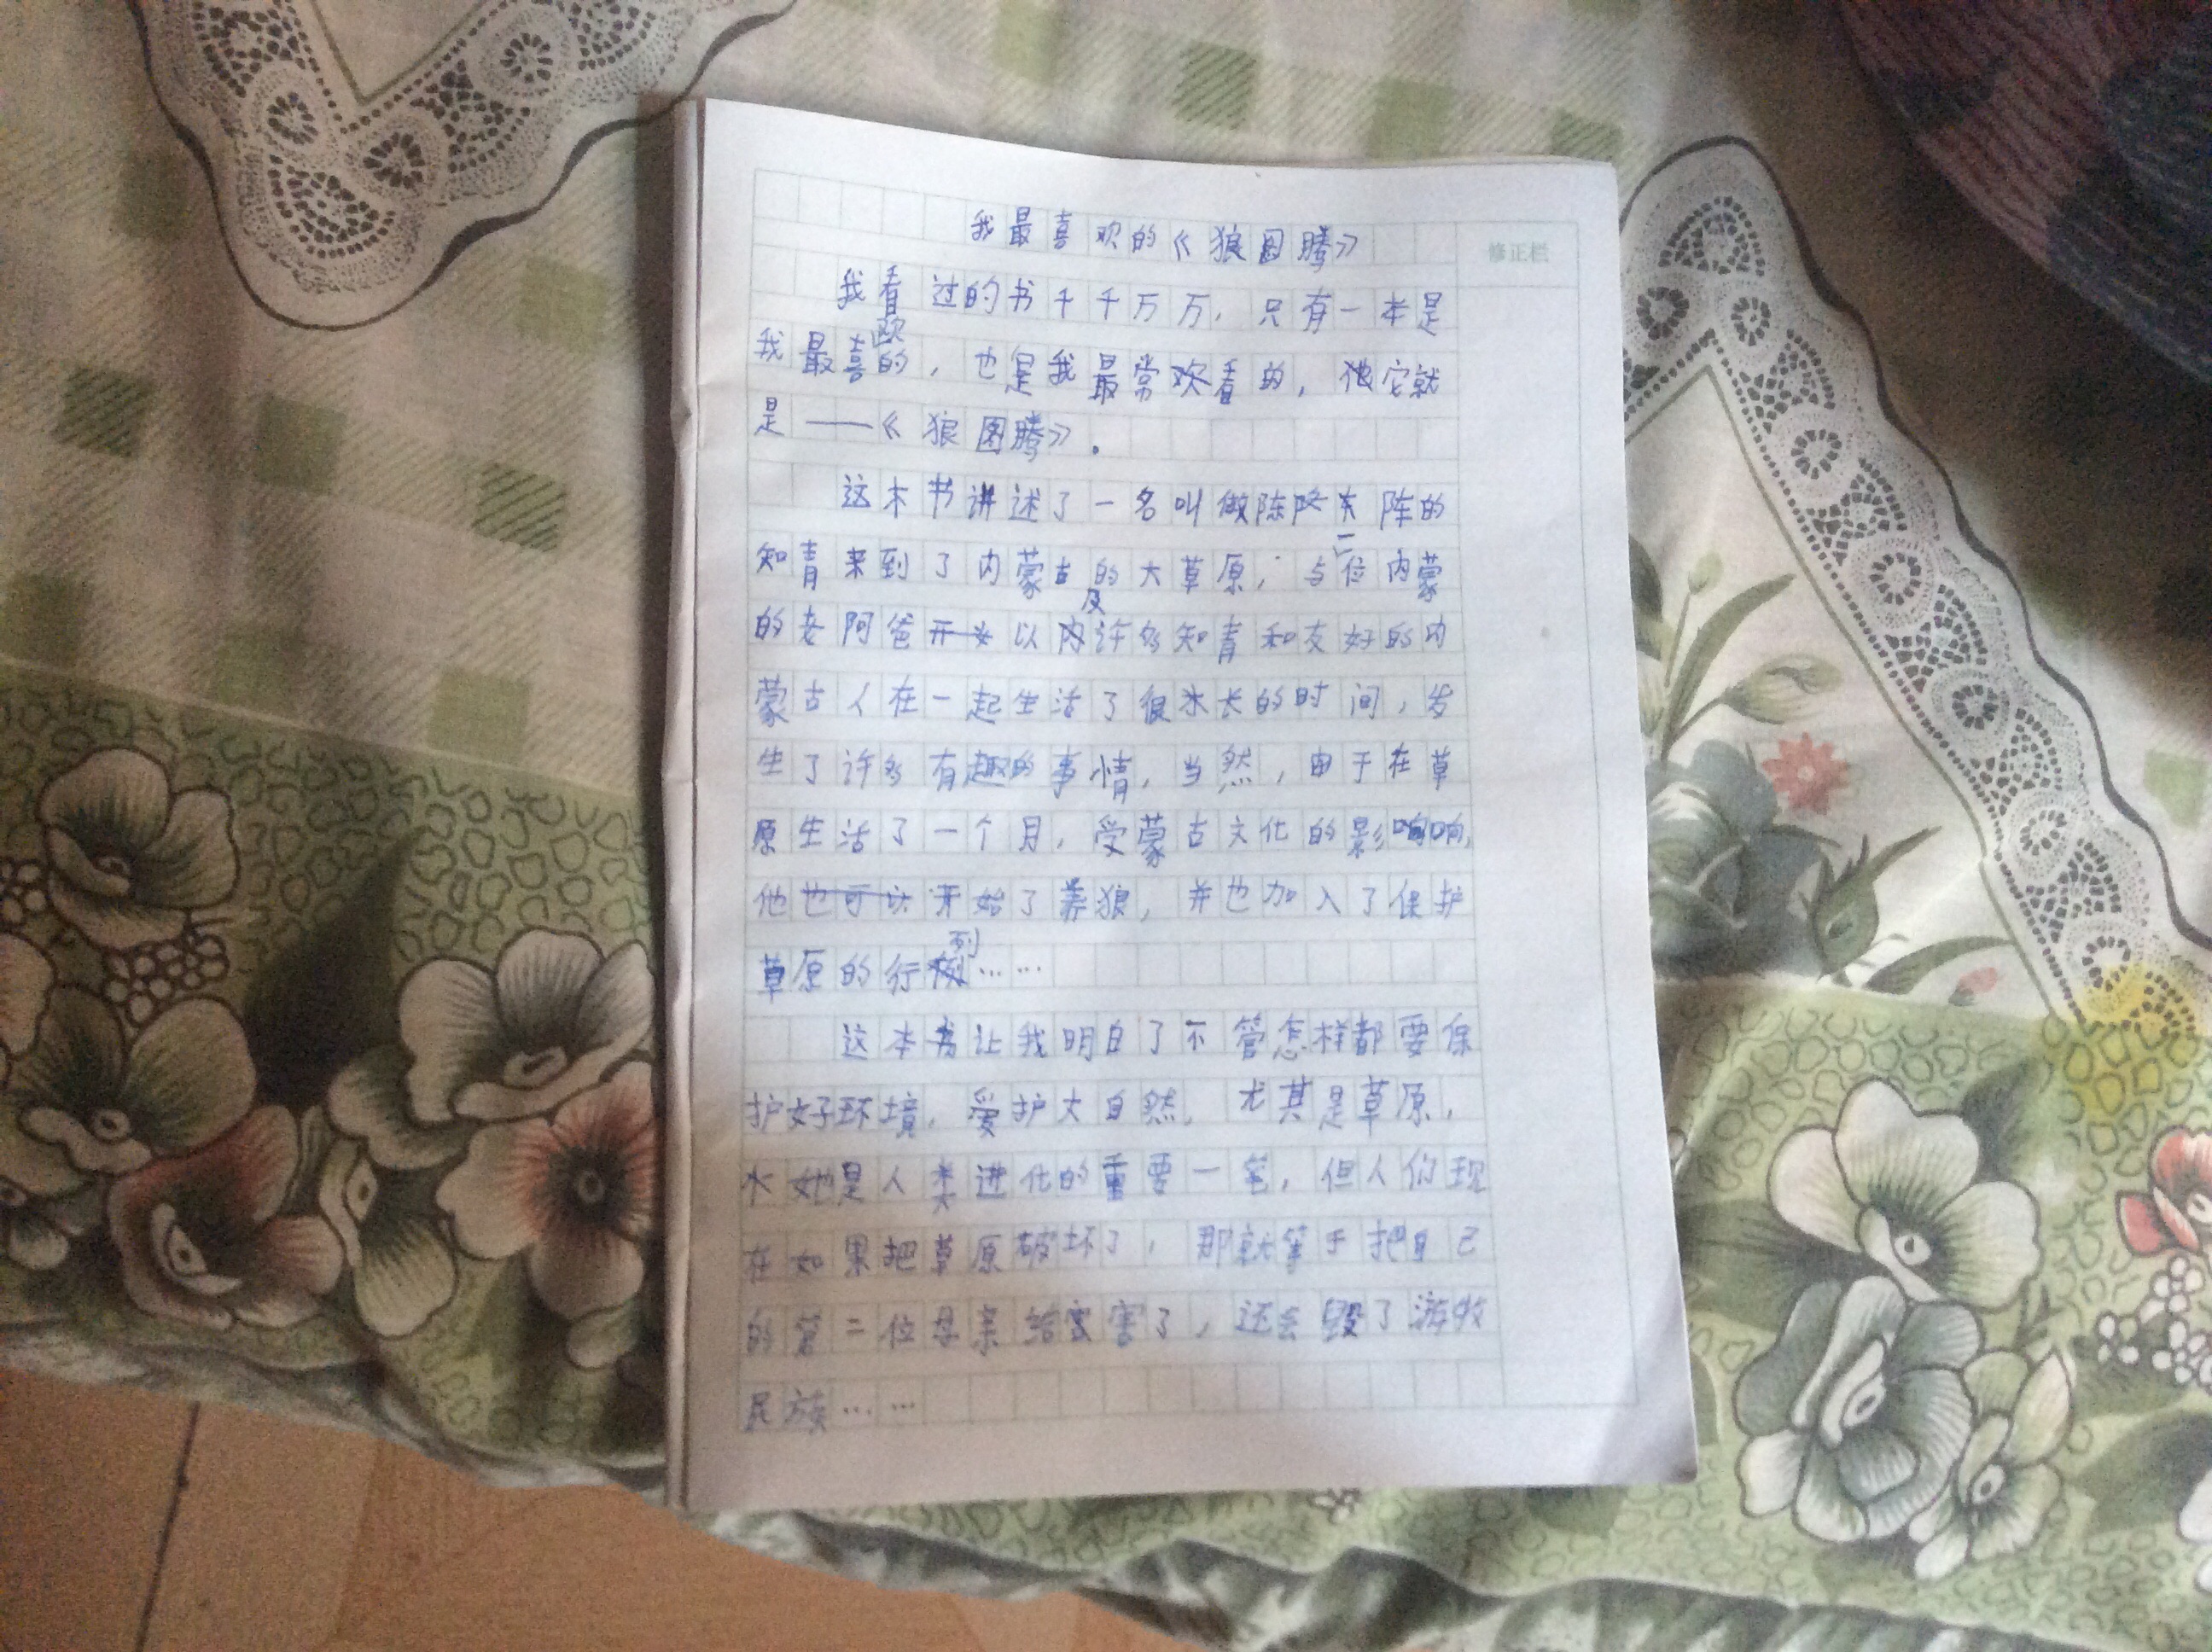 我最喜欢的《狼图腾》
修正栏
我看过的书千千万万，只有一本是
我最喜欢的，也是我最常欢看的，它就
是——《狼图腾》。
这本书讲述了一名叫做陈阵的
知青来到了内蒙古的大草原，与一位内蒙
的老阿爸以及许多知青和友好的内
蒙古人在一起生活了很长的时间，发
生了许多有趣的事情，当然，由于在草
原生活了一个月，受蒙古文化的影响，
他开始了养狼，并也加入了保护
草原的行列……
这本书让我明白了不管怎样都要保
护好环境，爱护大自然，尤其是草原，
她是人类进化的重要一笔，但人们现
在如果把草原破坏了，那就等于把自己
的第二位母亲给害了，还会毁了游牧
民族……